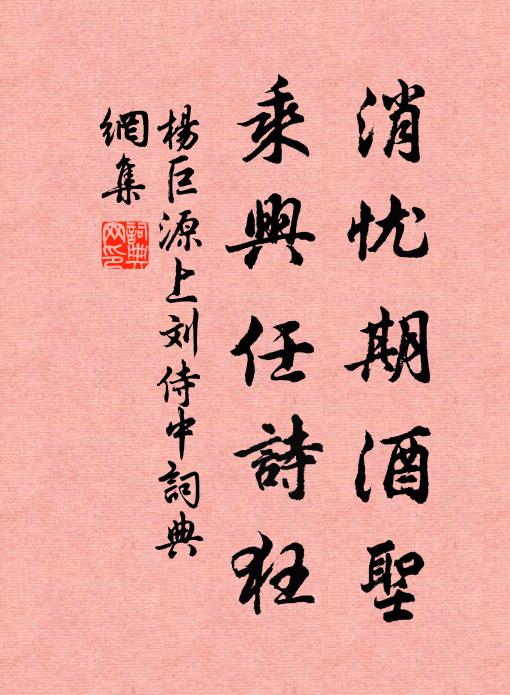 消忧期酒聖
乘興任詩狂
楊巨源上刘侍中詞典
網集
詞典網印